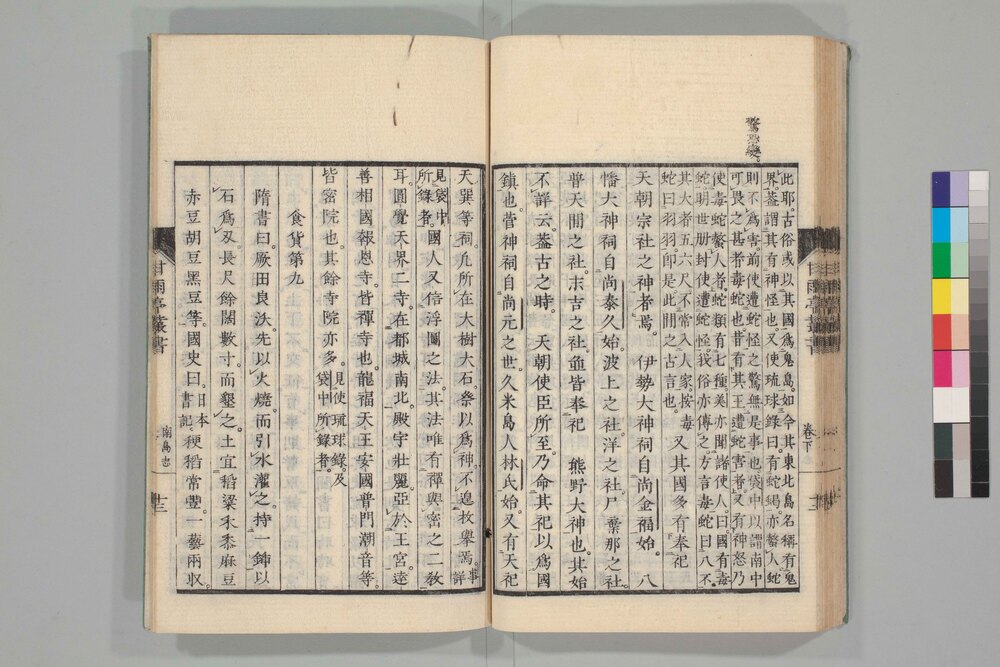 驚恐變。
此耶。古俗或以其國爲鬼島。如今其東北島名稱有鬼
界。蓋謂其有神怪也。又使琉球錄曰。有蛇蝎。亦螫人。蛇
則不爲害。前使遭蛇怪之驚無是事也。袋中以謂南中
可畏之甚者毒蛇也。昔有其王遭蛇害者。又有神怒乃
使毒蛇螫人者。蛇類有七種。美亦聞諸使人。曰國有毒
蛇。明世册封使遭蛇怪。我俗亦傳之。方言毒蛇曰八不。
其大者五六尺。不常入人家。按毒
蛇曰羽羽。卽是此間之古言也。又其國多有奉祀
天朝宗社之神者焉。伊勢大神祠自尚金福始。八
幡大神祠自尚泰久始。波上之社。洋之社。尸棄那之社。
普天間之社。末吉之社。並皆奉祀熊野大神也。其始
不詳云。蓋古之時。天朝使臣所至。乃命其祀以爲國
鎮也。菅神祠自尚元之世。久米島人林氏始。又有天祀
甘雨亭叢書
卷下
十三
天巽等祠。凡所在大樹大石。祭以爲神。不遑枚擧焉。事詳
見袋中
所錄者。國人又信浮圖之法。其法唯有禪與密之二教
耳。圓覺天界二寺。在都城南北。殿宇壯麗。亞於王宮。逵
善相國報恩寺。皆禪寺也。龍福天王安國普門潮音等。
皆密院也。其餘寺院亦多。見使琉球錄。及
袋中所錄者。
食貨第九
隋書曰。厥田良沃。先以火燒。而引水灌之。持一鍤以
石爲刄。長尺餘闊數寸。而墾之。土宜稻粱禾黍麻豆
赤豆胡豆黑豆等。國史曰。日本
書記。稉稻常豐。一蓺兩収。
甘雨亭叢書
南島志
十三